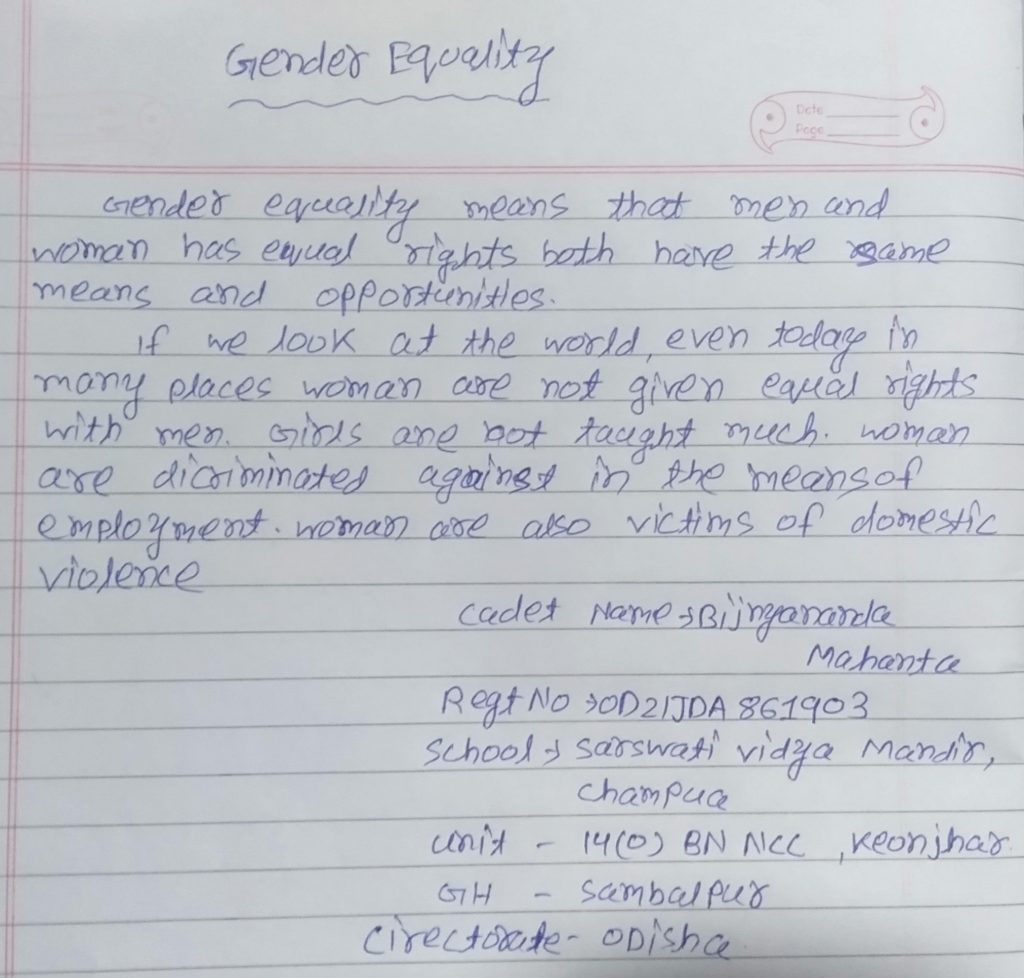 Gender Equality
Date
Page
Gender equality means that men and
woman has equal rights both have the same
means and opportunities.
If we look at the world, even today in
many places woman are not given equal rights
with men. Girls are not taught much. woman
are dicriminated against in the means of
employment. woman are also victims of domestic
violence
Cadet Name → Bijnyananda
Mahanta
Regt No → OD21JDA 861903
School → Sarswati vidya Mandir,
Champua
Unit - 14(O) BN NCC , Keonjhar.
GH - Sambalpur
Cirectorate - Odisha